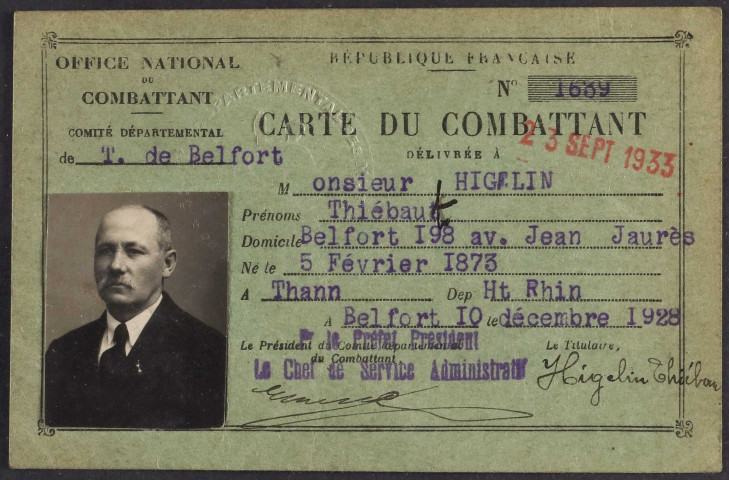 OFFICE NATIONAL
DU
COMBATTANT
COMITÉ DÉPARTEMENTAL
de T. de Belfort
RÉPUBLIQUE FRANÇAISE
N° 1689
CARTE DU COMBATTANT
DÉLIVRÉE À
23 SEPT 1933
Monsieur HIGELIN
Prénoms Thiébaut
Domicile Belfort I98 av. Jean Jaurès
Né le 5 Février I873
A Thann Dep Ht Rhin
A Belfort IO le décembre I928
Le Président du Comité départemental
du Combattant
Pr le Préfet Président
Le Chef de Service Administratif
Le Titulaire,
Higelin Thiébau